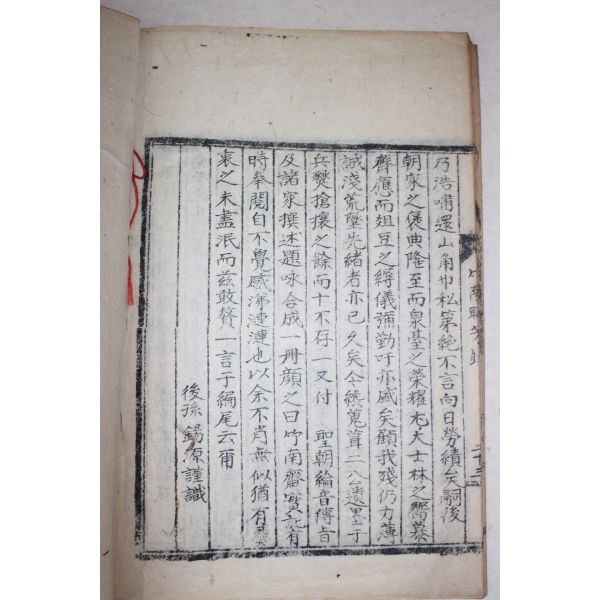 乃浩嘯還山角巾私第絶不言向日勞績矣嗣後
朝家之褒典隆至而泉臺之榮耀尤大士林之嚮慕
齊應而俎豆之縟儀彌勤吁亦戚矣顧我殘仍力薄
誠淺荒墜先緖者亦已久矣今纔蒐葺二公遺墨于
兵燹搶攘之餘而十不存一又付 聖朝綸音傳旨
及諸家撰述題咏合成一冊顔之曰竹南齋實記
時奉閱自不覺感涕漣漣也以余不肖無似猶有
衷之未盡泯而兹敢贅一言于編尾云甭
後孫 錫源謹識
二十三